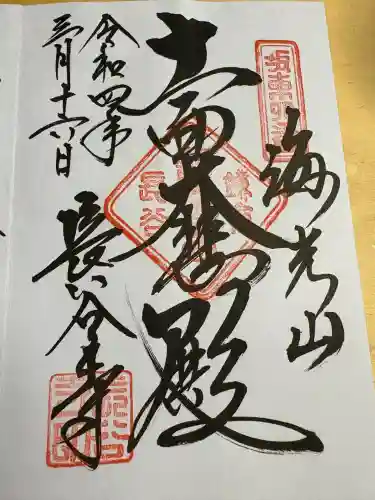 海光山
坂東四番
十一面大悲殿
鎌倉
長谷
令和四年
三月十六日
長谷寺